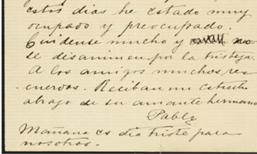 estos días he estado muy
ocupado y preocupado.
Cuídense mucho y no
se desanimen por la tristeza.
A los amigos muchos re-
cuerdos. Reciban un estrecho
abrazo de su amante hermano
Pablo
Mañana es día triste para
nosotros.